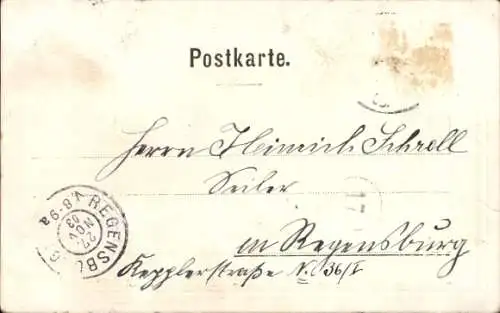 Postkarte.
Herrn Heinrich Schroll
Seiler
in Regensburg
Kepplerstraße N. 36/I
REGENSB
V.8-9a
27.
NOV
03
17